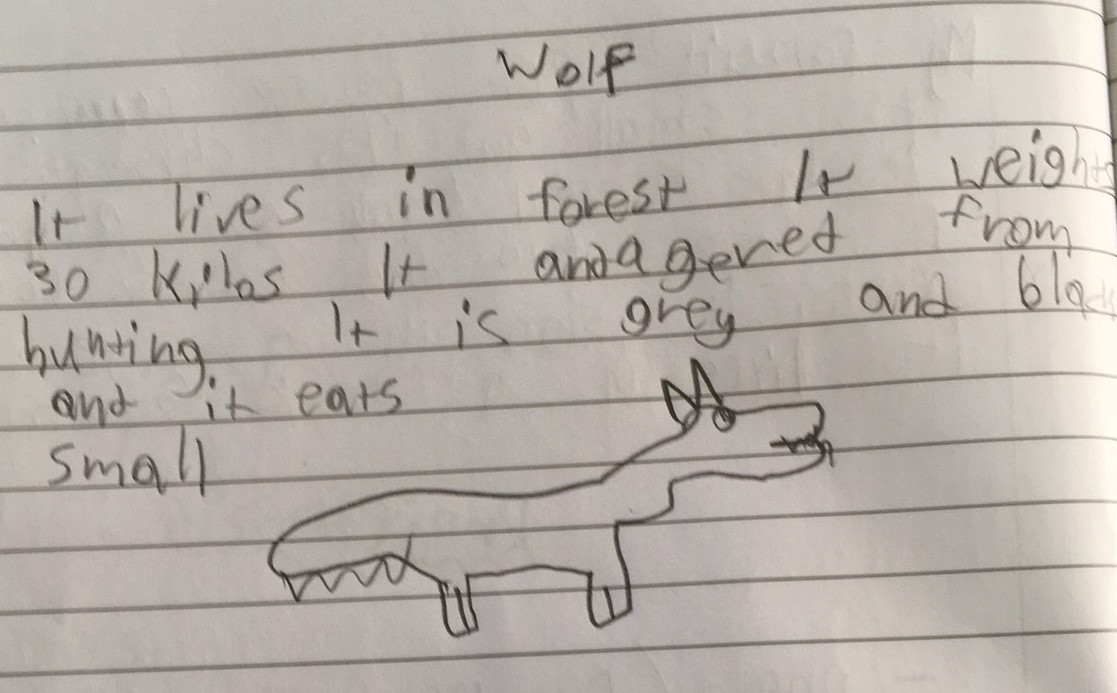 Wolf
It lives in forest It weight
30 Kilos It andagered from
hunting It is grey and bla
and it eats
small